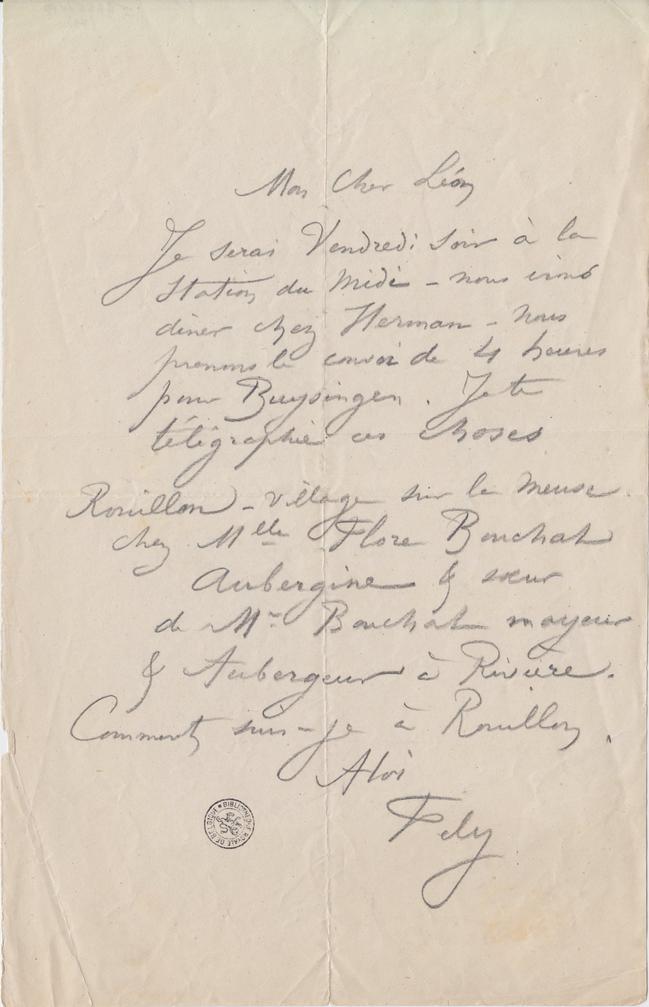 Mon Cher Léon
Je serai Vendredi soir à la
Station du midi - nous irons
diner chez Herman - nous
prenons le convoi de 4 heures
pour Buysingen. Je te
télégraphie ces choses
Rouillon - village sur la meuse.
chez Mlle Flore Bouchat
Aubergine & sœur
de Mr Bouchat mayeur
& Aubergeur à Rivière.
Comment suis-je à Rouillon,
Fely
BIBLIOTHÈQUE ROYALE DE BELGIQUE